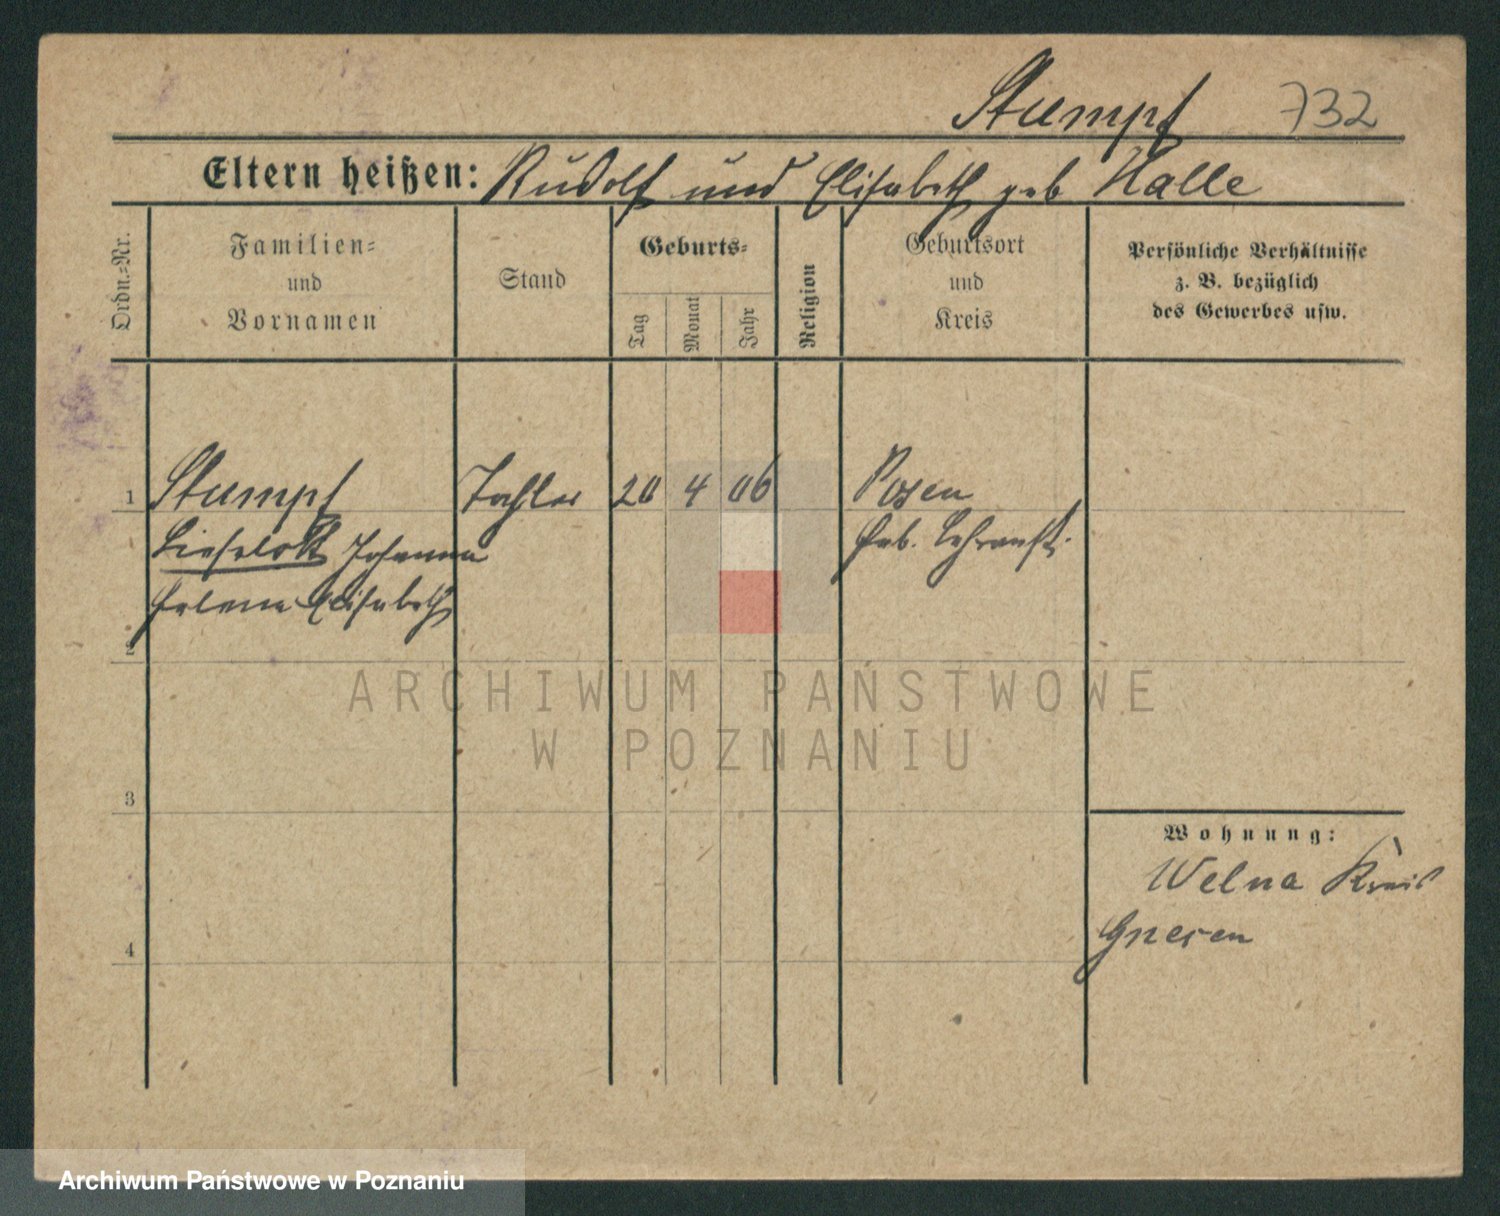 Stumpf 732
Eltern heißen: Rudolf und Elisabeth geb Halle
Ordn.=Nr.
Familien=
und
Vornamen
Stand
Geburts=
Tag
Monat
Jahr
Religion
Geburtsort
und
Kreis
Persönliche Verhältnisse
z. B. bezüglich
des Gewerbes usw.
1 Stumpf Tochter 20 4 06 Posen
Lieselott Johanna
Helene Elisabeth
2
ARCHIWUM PAŃSTWOWE
W POZNANIU
3
Wohnung:
Welna Kreis
Gnesen
4
Archiwum Państwowe w Poznaniu